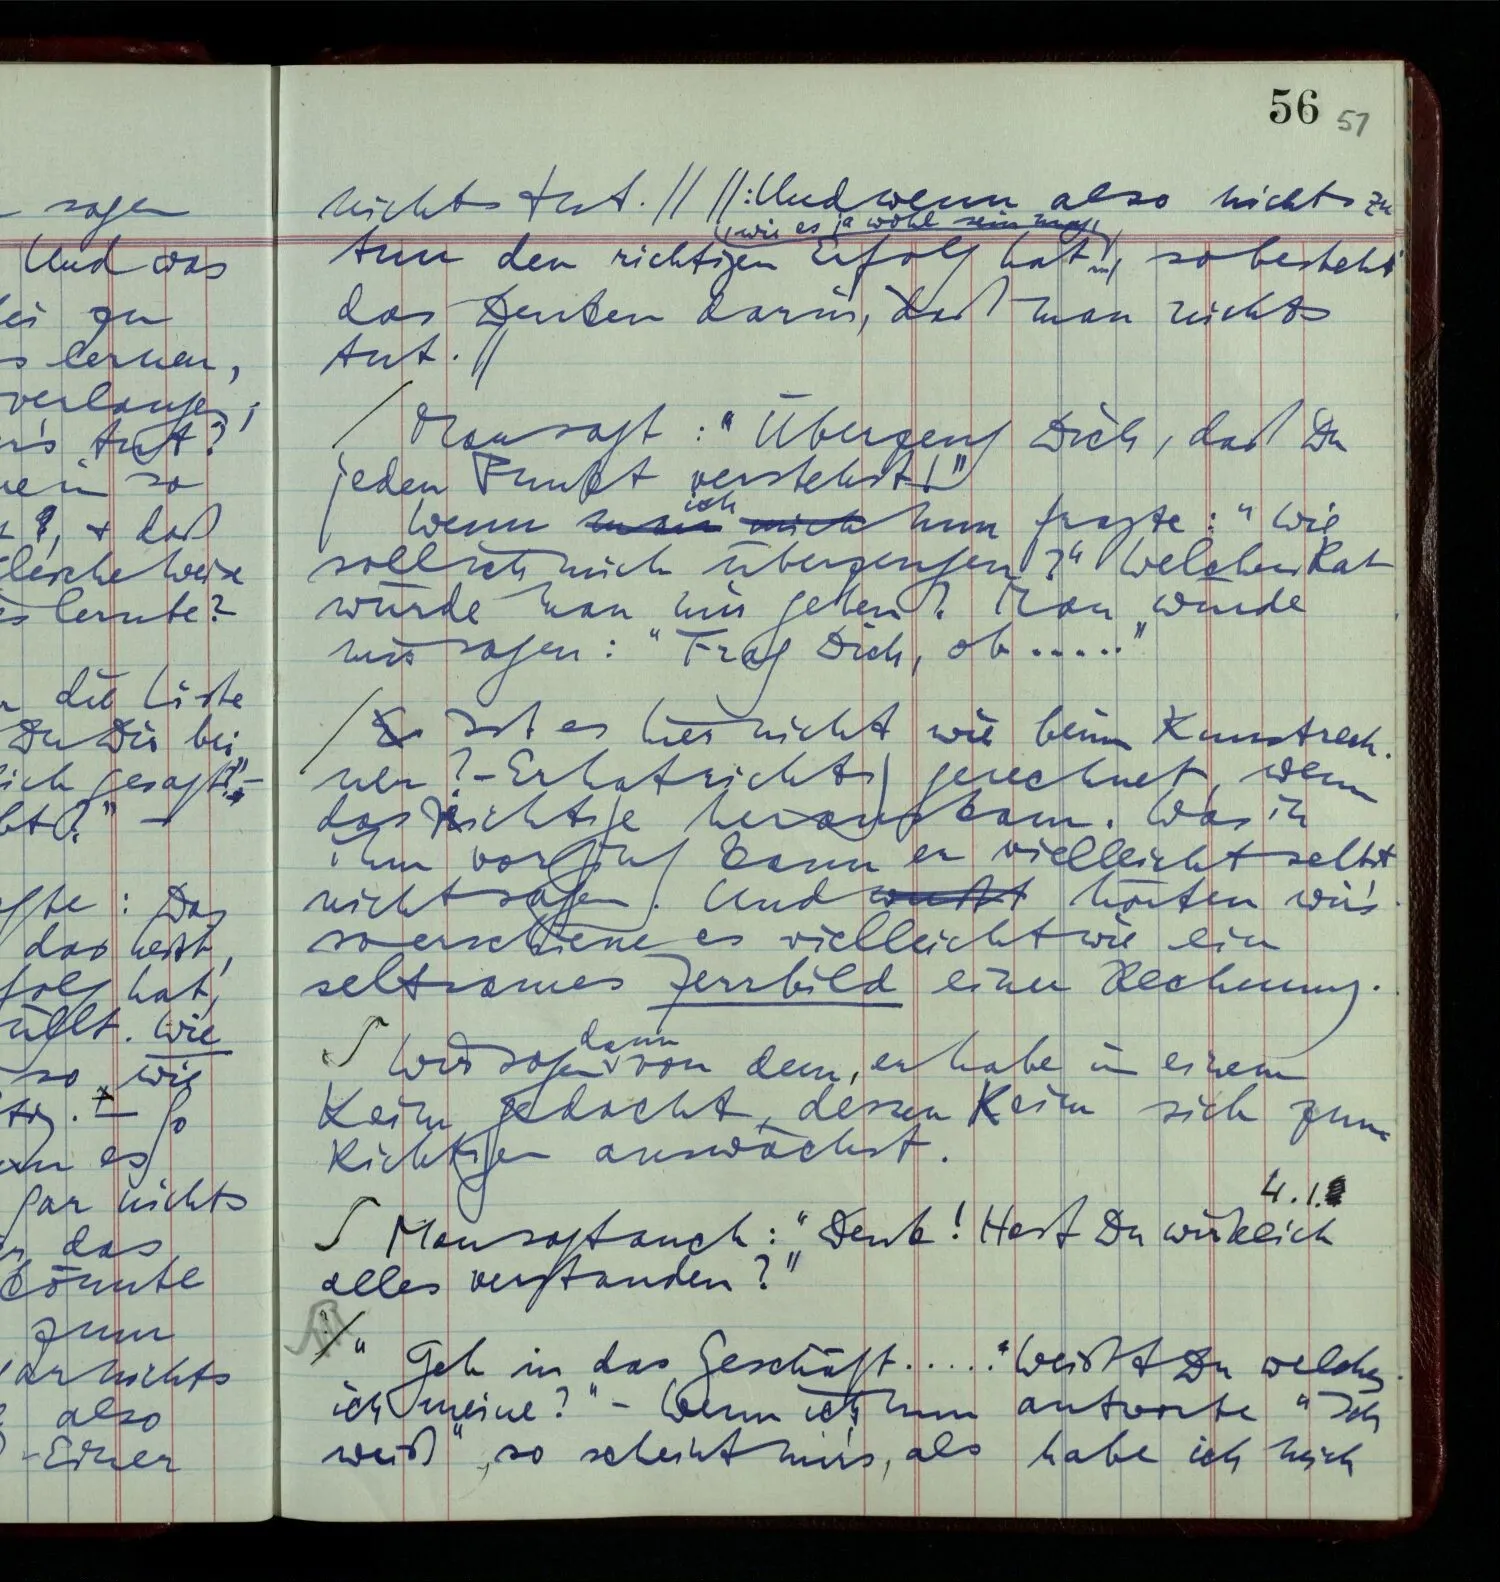 56 51
nichts tut. // //: Und wenn also nichts zu
(wie es ja wohl sein mag)
tun den richtigen Erfolg hat, so besteht
das Denken darin, daß man nichts
tut. //
/ Man sagt: "Überzeug Dich, daß Du
jeden Punkt verstehst!"
ich
Wenn man mich nun fragte: "Wie
soll ich mich überzeugen?" Welchen Rat
würde man mir geben? Man würde
mir sagen: "Frag Dich, ob ....."
/ Es Ist es hier nicht wie beim Kunstrech-
ner? – Er hat richtig gerechnet, wenn
das Richtige herauskam. Was in
ihm vorging kann er vielleicht selbst
nicht sagen. Und hörten wir's
so erschiene es vielleicht wie ein
seltsames Zerrbild einer Rechnung.
dann
∫ Wir sagen von dem, er habe in einem
Keim gedacht, dessen Keim sich zum
Richtigen auswächst.
4.1.
∫ Man sagt auch: "Denk! Hast Du wirklich
alles verstanden?"
/ "Geh in das Geschäft ....." "Weißt Du welches
ich meine?" – Wenn ich nun antworte "Ich
weiß", so scheint mir's, als habe ich mich
sagen
Und was
bei zu
lernen,
verlangen,
tut?
so
, + daß
gleiche Weise
es lernte?
die Liste
Du Dir bei
gesagt?" –
–
sagte: Das
das heißt,
hat,
. Wie
so, wie
. – So
es
gar nichts
das
könnte
zum
gar nichts
also
– Einer